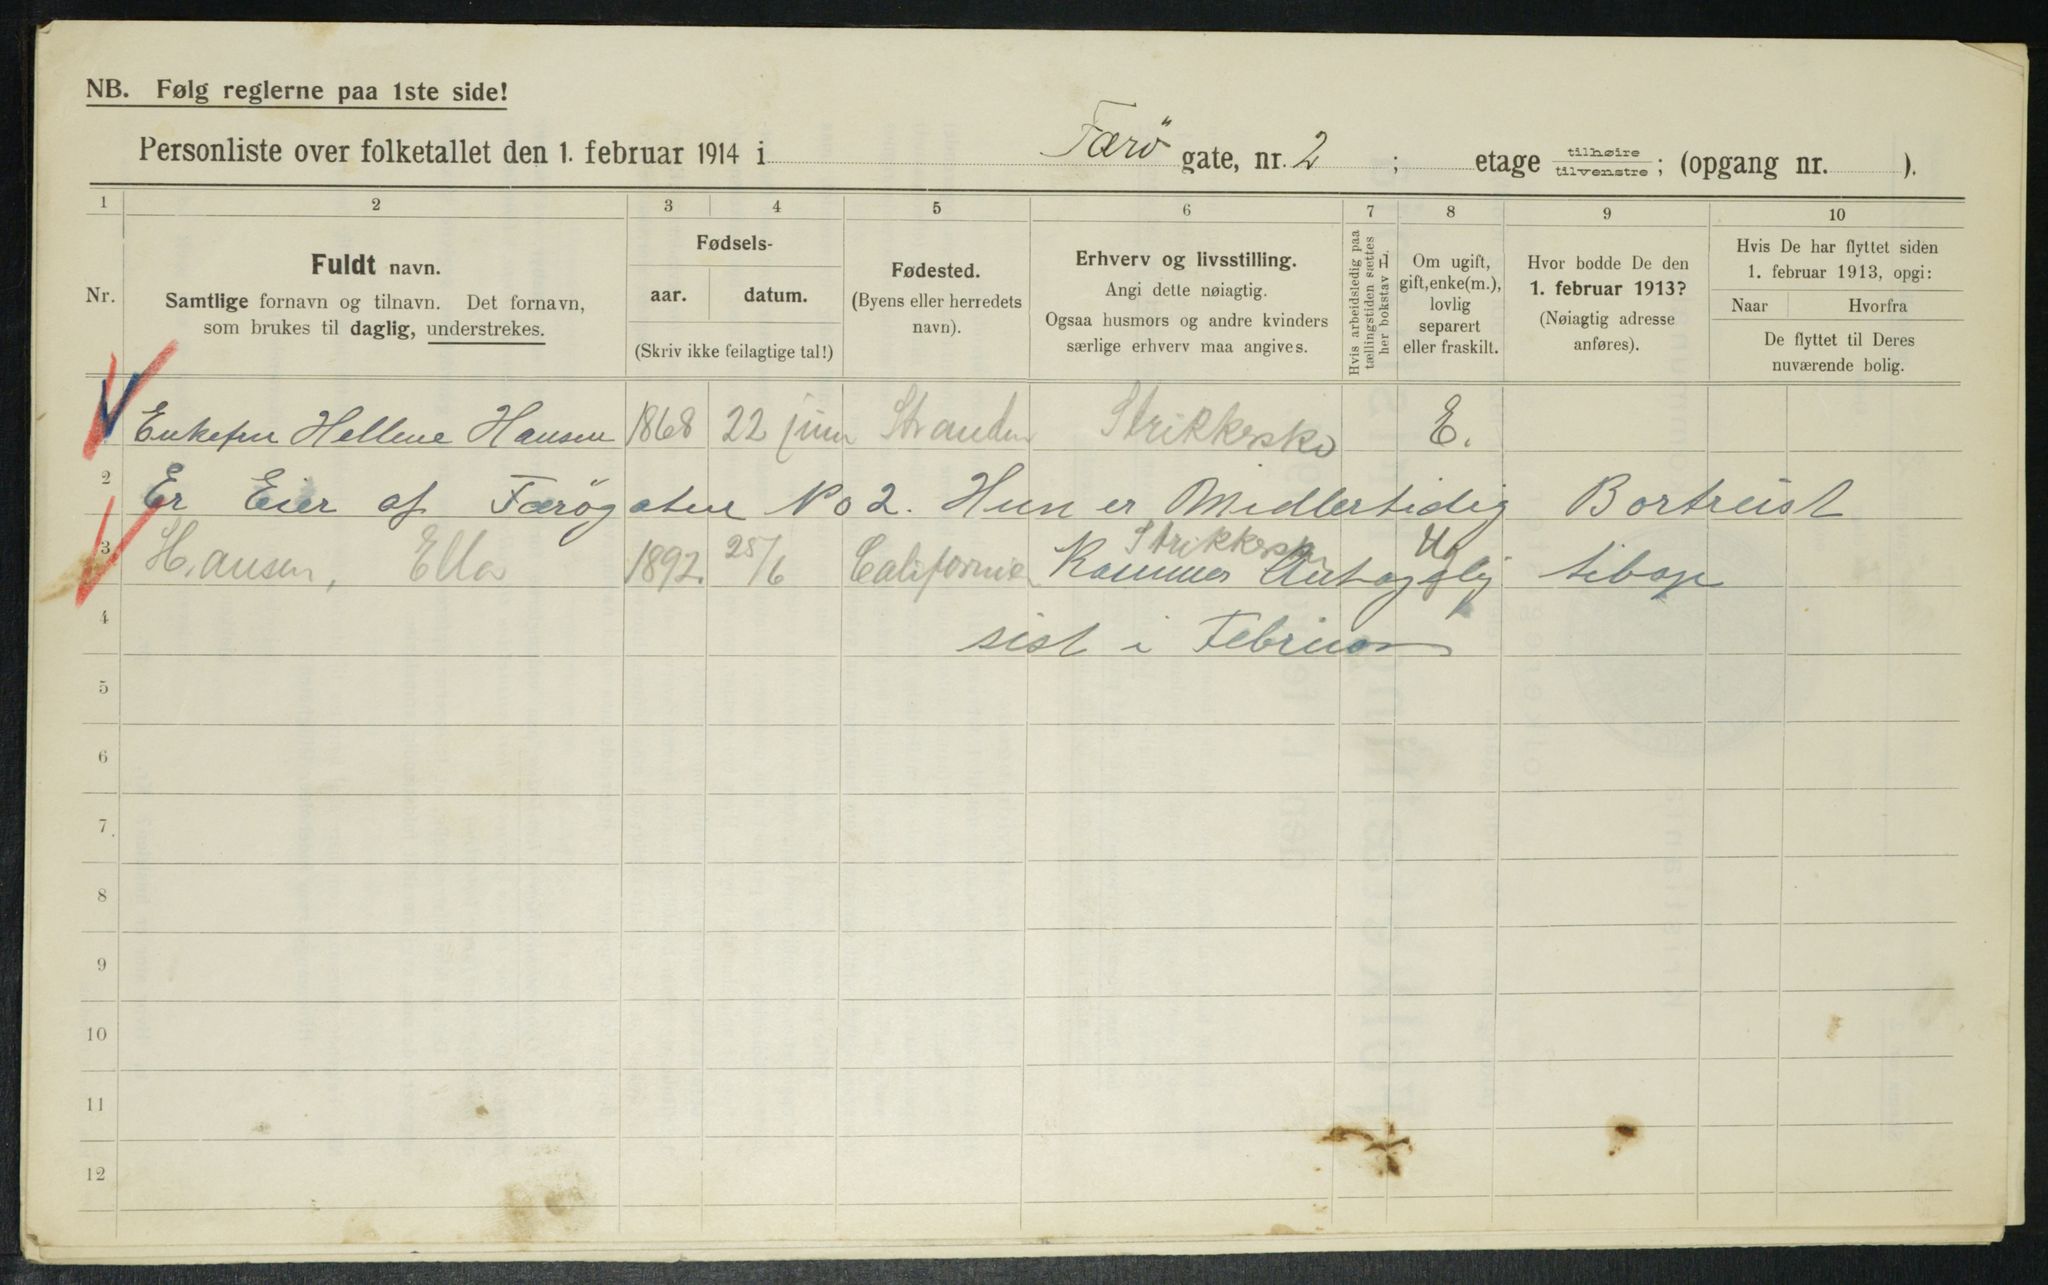 NB. Følg reglerne paa 1ste side!
Personliste over folketallet den 1. februar 1914 i Færö gate, nr. 2 ; etage tilhøire tilvenstre ; (opgang nr. ).
1 2 3 4 5 6 7 8 9 10
Nr.
Fuldt navn.
Samtlige fornavn og tilnavn. Det fornavn,
som brukes til daglig, understrekes.
Fødsels-
aar. datum.
(Skriv ikke feilagtige tal!)
Fødested.
(Byens eller herredets
navn).
Erhverv og livsstilling.
Angi dette nøiagtig.
Ogsaa husmors og andre kvinders
særlige erhverv maa angives.
Hvis arbeidsledig paa
tællingstiden sættes
her bokstav H.
Om ugift,
gift, enke(m.),
lovlig
separert
eller fraskilt.
Hvor bodde De den
1. februar 1913?
(Nøiagtig adresse
anføres).
Hvis De har flyttet siden
1. februar 1913, opgi:
Naar Hvorfra
De flyttet til Deres
nuværende bolig.
Enkefru Hellene Hansen 1868 22 juni Stranden Strikkerske E.
2 Er Eier af Færøgaten No 2. Hun er Midlertidig Bortreist
3 Hansen, Ella 1892. 25/6 Californien Strikkerske U
Kommer Antagelig tibage
4 sist i Februar
5
6
7
8
9
10
11
12